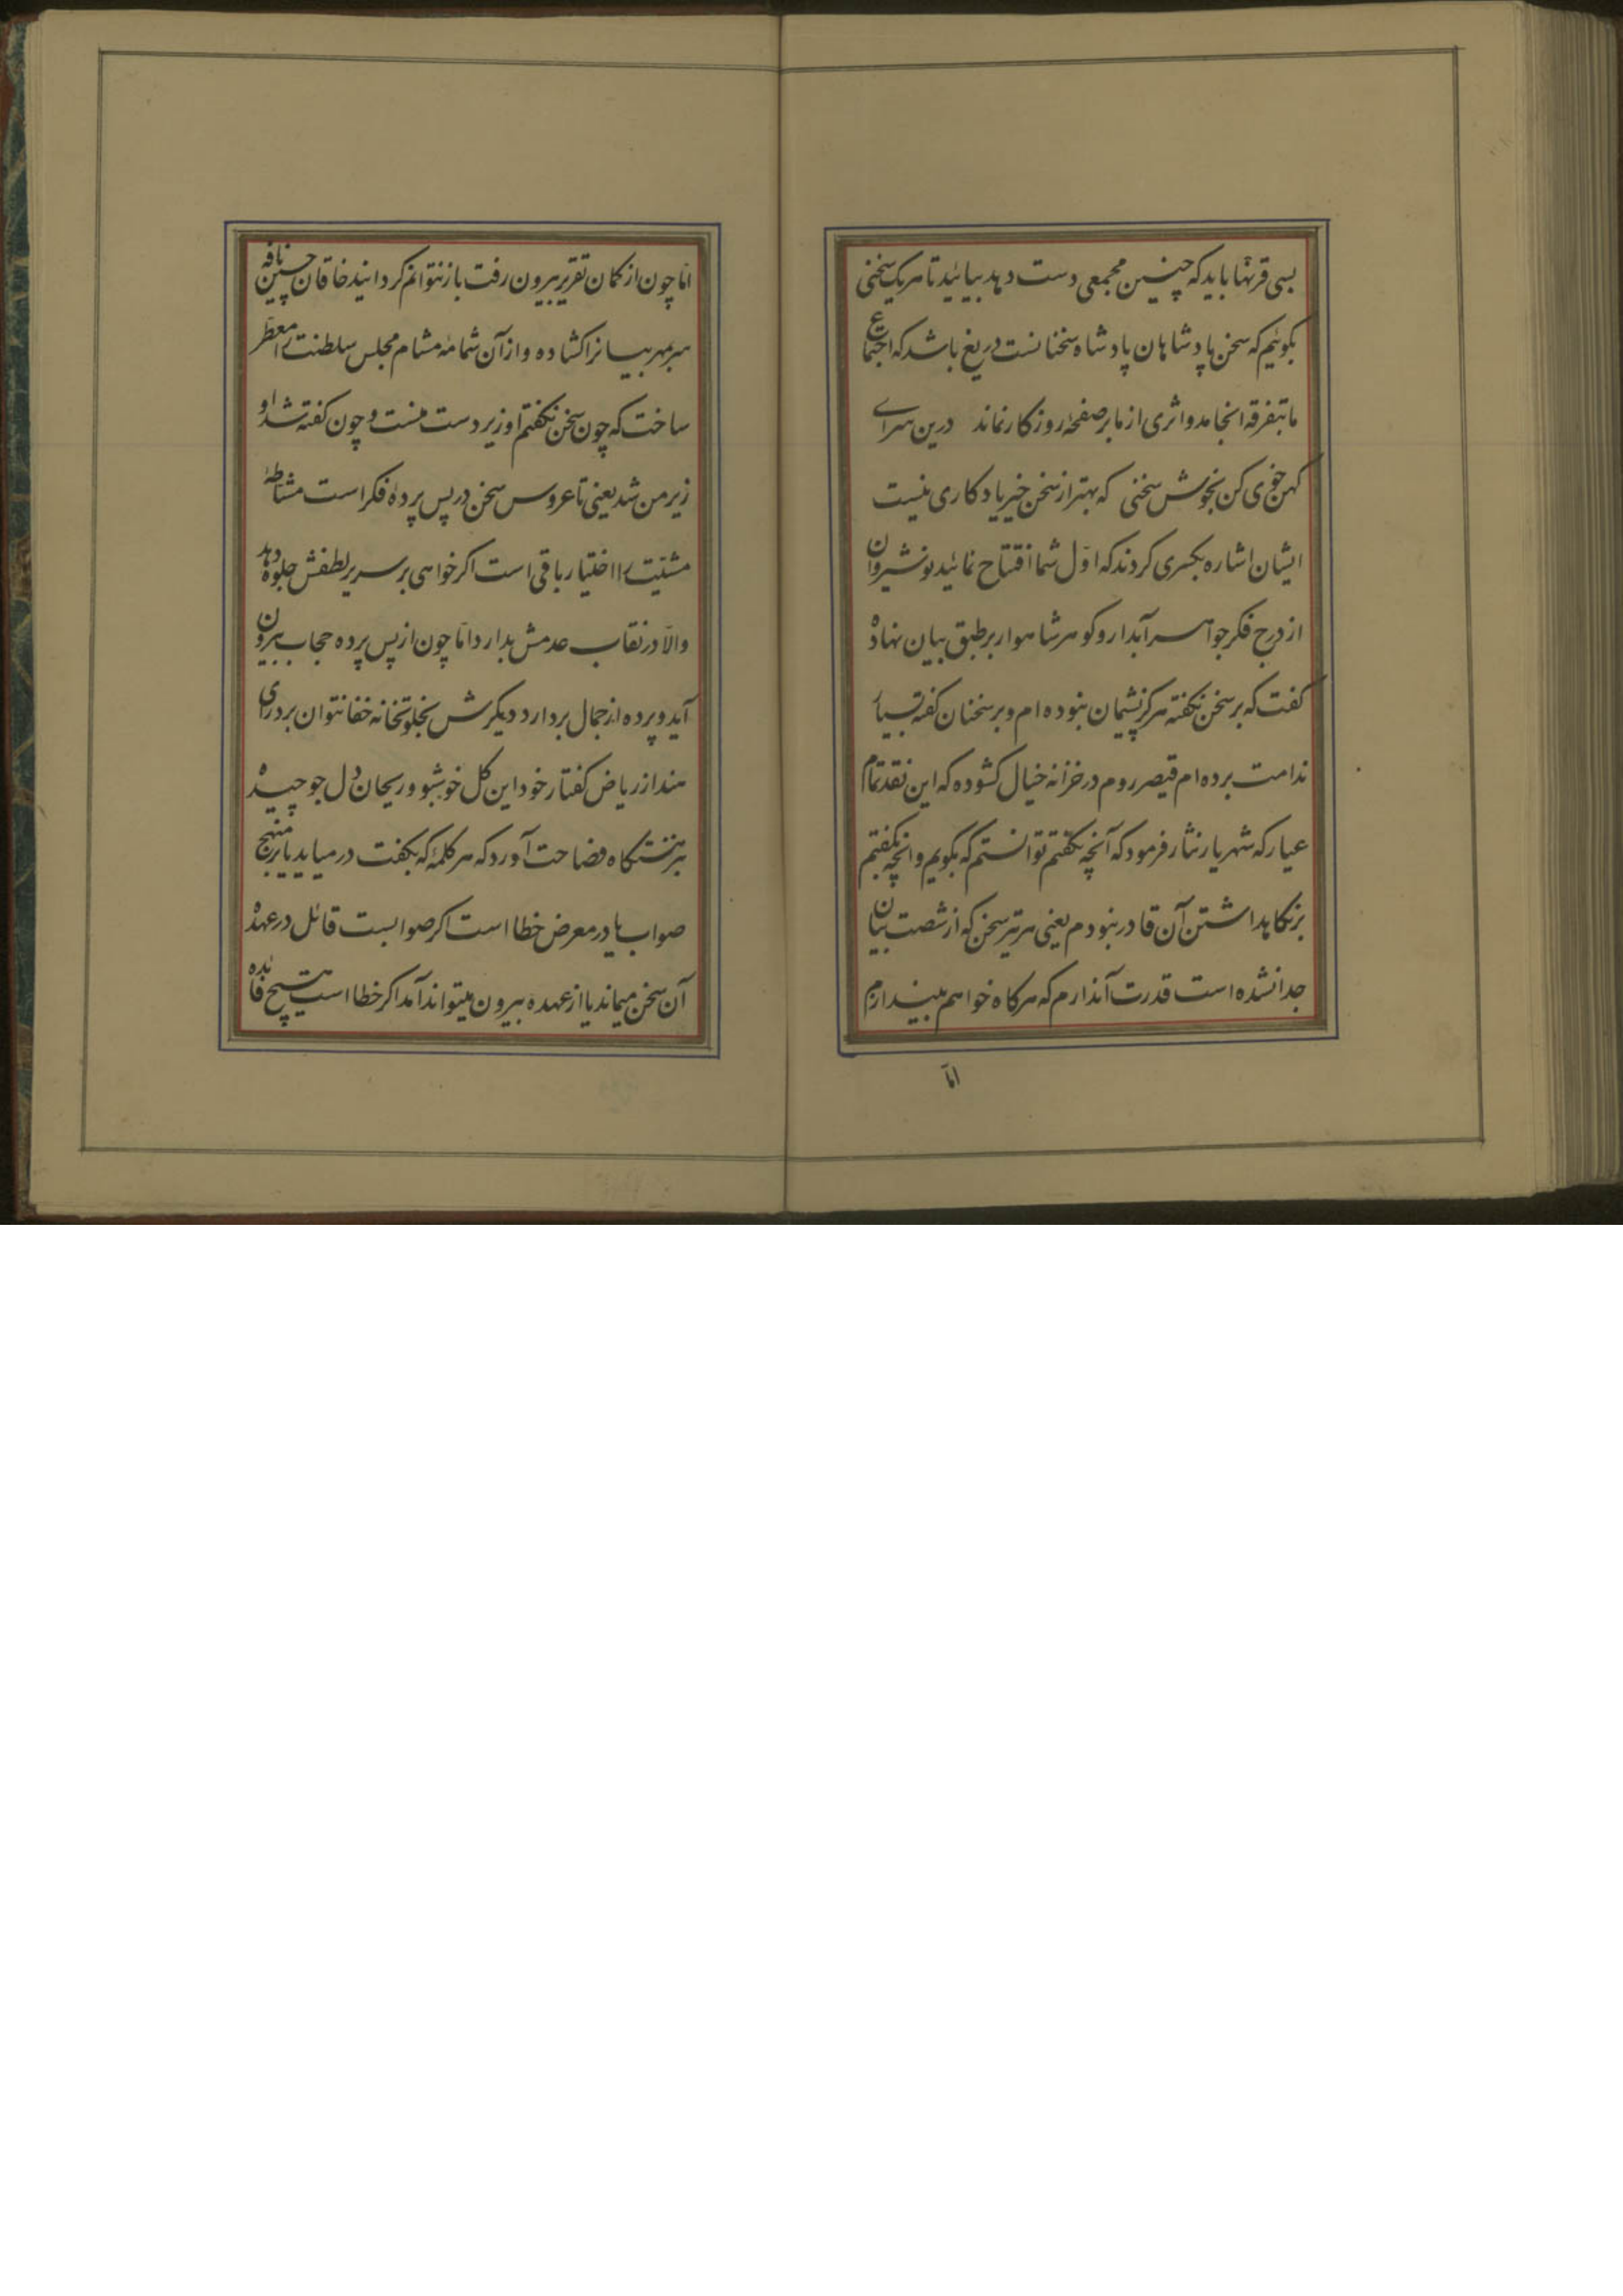 بسی قرنها باید که چنین مجمعی دست دهد بیائید تا هر یک سخنی
بگوئیم که سخن پادشاهان پادشاه سخنانست دریغ باشد که اجتماع
ما بتفرقه انجامد و اثری از ما بر صفحهٔ روزکار نماند درین سرای
کهن خوی کن بخوش سخنی که بهتر از سخن خیر یادکاری نیست
ایشان اشاره بکسری کردند که اوّل شما افتتاح نمائید نوشیروان
از درج فکر جواهر آبدار و کوهر شاهوار بر طبق بیان نهاده
کفت که بر سخن نکفته هرکز پشیمان نبوده ام و بر سخنان کفته بسیار
ندامت برده ام قیصر روم در خزانه خیال کشوده که این نقد تمام
عیار که شهریار نثار فرمود که آنچه نکفتم توانستم که بکویم و آنچه بکفتم
بر نکاهداشتن آن قادر نبودم یعنی هر تیر سخن که از شصت بیان
جدا نشده است قدرت آندارم که هرکاه خواهم بیندازم
امّا
امّا چون از کمان تقریر بیرون رفت باز نتوانم کردانید خاقان چین نافه
سر بمهر بیانرا کشاده و از آن شمامه مشام مجلس سلطنت را معطّر
ساخت که چون سخن نکفتم او زیر دست منست و چون کفته شد او
زبر من شد یعنی تا عروس سخن در پس پردهٔ فکر است مشاطهٔ
مشیّت را اختیار باقی است اکر خواهی بر سریر لطفش جلوه دهد
والّا در نقاب عدمش بدارد امّا چون از پس پرده حجاب بیرون
آید و پرده از جمال بردارد دیکرش بخلوتخانه خفا نتوان برد رای
هند از ریاض کفتار خود این کل خوشبو و ریحان دل جو چیده
بنزهتکاه فصاحت آورد که هر کلمهٔ که بکفت درمیاید یا بر منهج
صواب یا در معرض خطا است اکر صوابست قائل در عهدهٔ
آن سخن میماند یا از عهده بیرون میتواند آمد اکر خطا است هیچ فائده